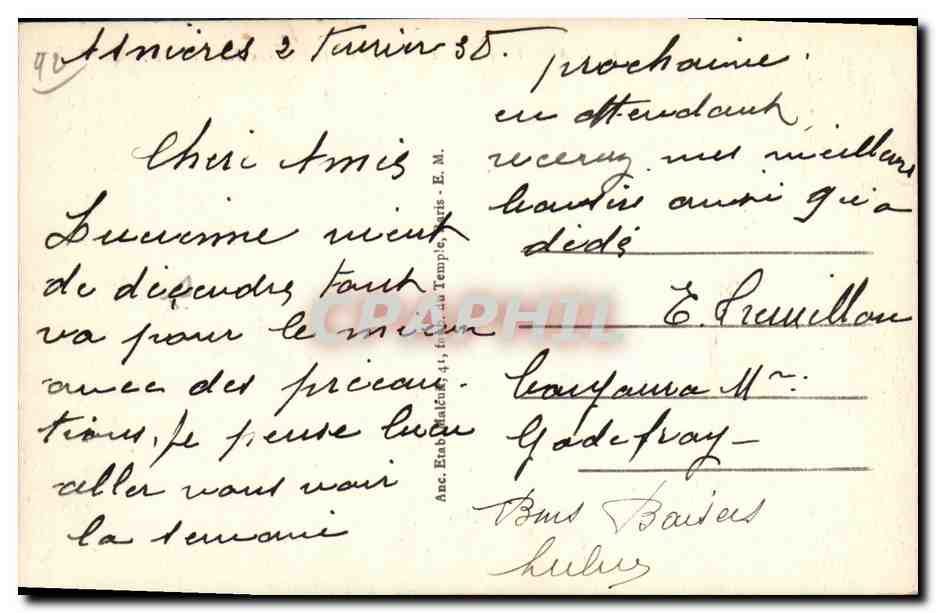 Asnières 2 Fevrier 35.
Chers Amis
Lucienne vient
de déçendre tout
va pour le mieux
avec des précau-
tions. Je pense bien
aller vous voir
la semaine
prochaine.
en attendant
recevez mes meilleurs
baisers ainsi qu'a
dédé
E.
Mr:
Godefroy
Bons Baisers
Lulu
Anc. Etab. Malcuit, 41, faub. du Temple, Paris - E. M.
CPAPHIL